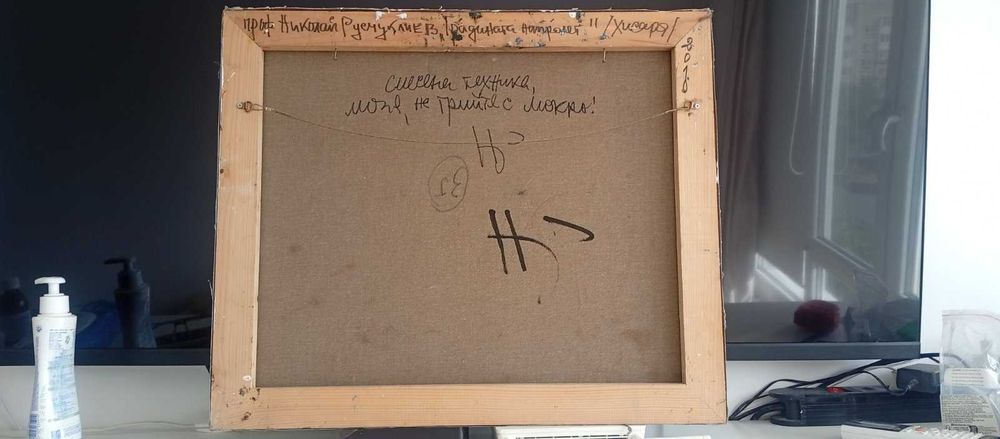 проф. Николай Русчуклиев, "Градината напролет" /Хисаря/
2020
смесена техника,
моля, не трийте с мокро!
35